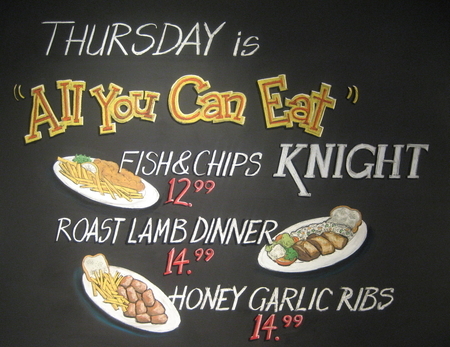 THURSDAY is
"All You Can Eat"
FISH & CHIPS KNIGHT
12.99
ROAST LAMB DINNER
14.99
HONEY GARLIC RIBS
14.99